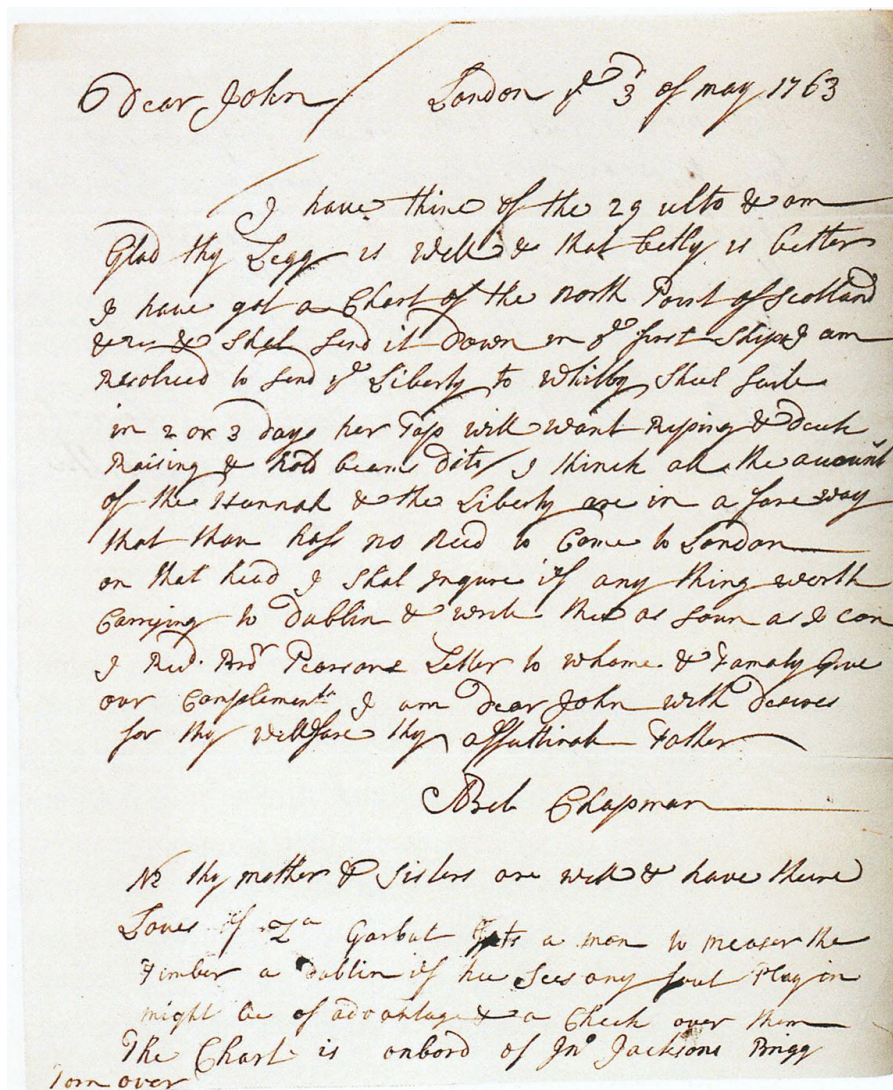 Dear John London ye 3d of may 1763
I have thine of the 29 ulto & am
Glad thy Legg is well & that betty is better
I have got a Chart of the North Point of Scotland
& Shal Send it Down in ye first Ship I am
Resolued to Send ye Liberty to Whitby Shee Saile
in 2 or 3 days her Tops will want Riping & Deck
Raising & hold beams Dito I think all the accounts
of the Hannah & the Liberty are in a fare way
that thou hass no need to Come to London
on that head I Shal inqure if any thing worth
Carrying to Dublin & write thee as Soun as I can
I Recd. Bror Pearsons Letter to whome & Famaly Give
our Complements I am Dear John with Desires
for thy wellfare thy affuttinate Father
Abel Chapman
NB thy mother & Sisters are well & have theire
Loves if Garbut gets a man to measer the
Timber a Dublin if hee Sees any foul Play in
might be of advantage & a Check over them
The Chart is onbord of Jno. Jacksons Brigg
Torn over